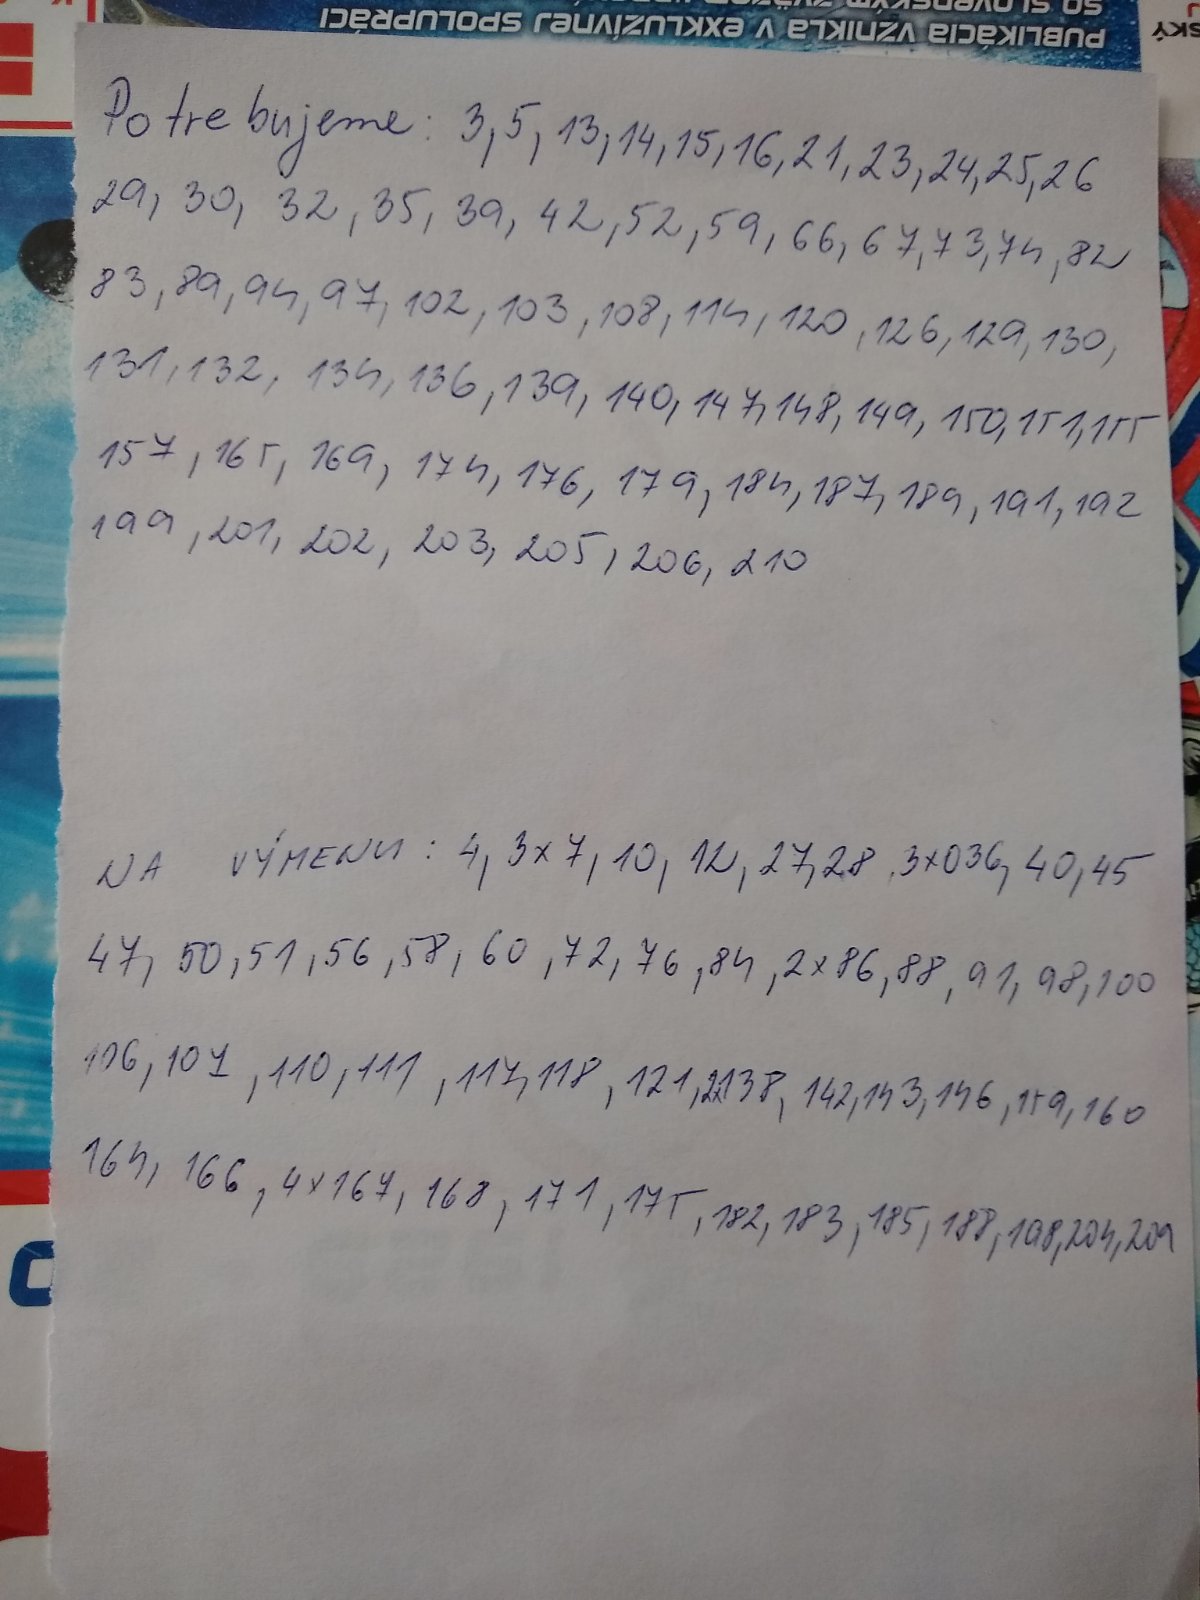 SO SLOVENSKÝM
PUBLIKÁCIA VZNIKLA V EXKLUZÍVNEJ SPOLUPRÁCI
SKÝ
Potrebujeme: 3, 5, 13, 14, 15, 16, 21, 23, 24, 25, 26
29, 30, 32, 35, 39, 42, 52, 59, 66, 67, 73, 74, 82
83, 89, 94, 97, 102, 103, 108, 114, 120, 126, 129, 130,
131, 132, 134, 136, 139, 140, 147, 148, 149, 150, 151, 155
157, 165, 169, 174, 176, 179, 184, 187, 189, 191, 192
199, 201, 202, 203, 205, 206, 210
NA VÝMENU: 4, 3x7, 10, 12, 27, 28, 3x036, 40, 45
47, 50, 51, 56, 58, 60, 72, 76, 84, 2x86, 88, 91, 98, 100
106, 107, 110, 111, 117, 118, 121, 2x138, 142, 143, 146, 159, 160
164, 166, 4x167, 168, 171, 175, 182, 183, 185, 188, 198, 204, 209